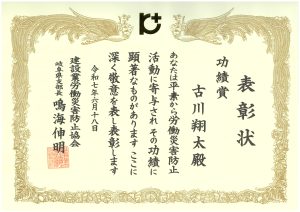 表彰状
功績賞
古川翔太殿
あなたは平素から労働災害防止
活動に寄与されその功績に
顕著なものがあります ここに
深く敬意を表し表彰します
令和七年六月十八日
建設業労働災害防止協会
岐阜県支部長 鳴海伸明